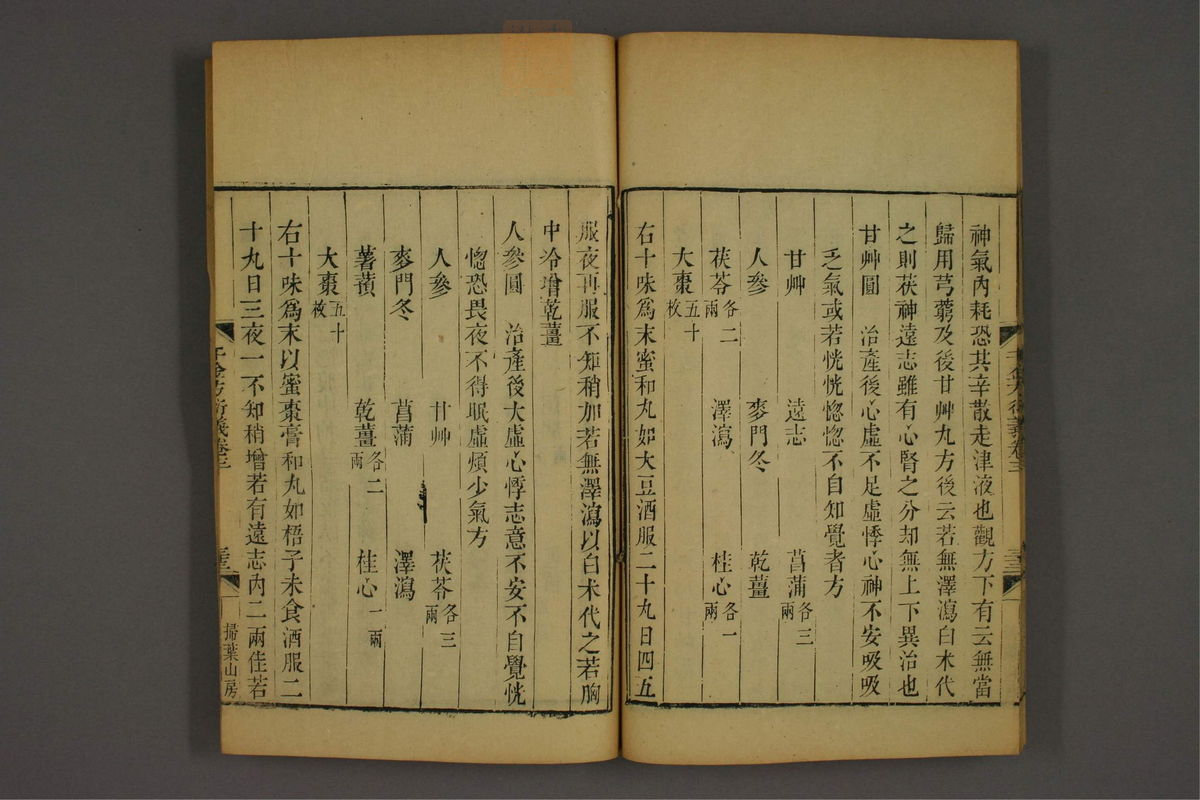 神氣內耗恐其辛散走津液也觀方下有云無當
歸用芎藭及後甘艸丸方後云若無澤瀉白朮代
之則茯神遠志雖有心腎之分却無上下異治也
甘艸圓 治產後心虛不足虛悸心神不安吸吸
乏氣或若恍恍惚惚不自知覺者方
甘艸 遠志 菖蒲各三兩
人參 麥門冬 乾薑
茯苓各二兩 澤瀉 桂心各一兩
大棗五十枚
右十味爲末蜜和丸如大豆酒服二十丸日四五
服夜再服不知稍加若無澤瀉以白朮代之若胸
中冷增乾薑
人參圓 治產後大虛心悸志意不安不自覺恍
惚恐畏夜不得眠虛煩少氣方
人參 甘艸 茯苓各三兩
麥門冬 菖蒲 澤瀉
薯蕷 乾薑各二兩 桂心一兩
大棗五十枚
右十味爲末以蜜棗膏和丸如梧子未食酒服二
十丸日三夜一不知稍增若有遠志內二兩佳若
千金方衍義卷三
掃葉山房